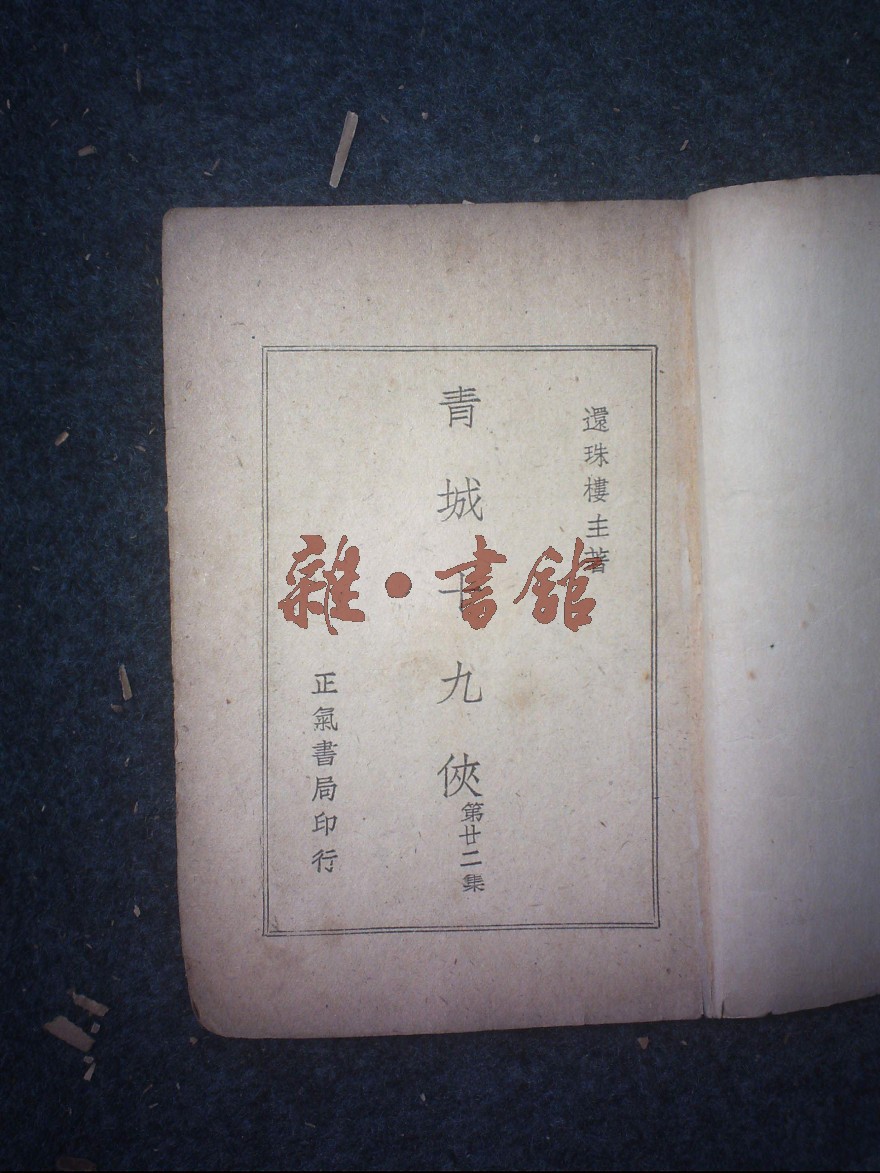 還珠樓主著
青城十九俠
第廿二集
正氣書局印行
雜·書館